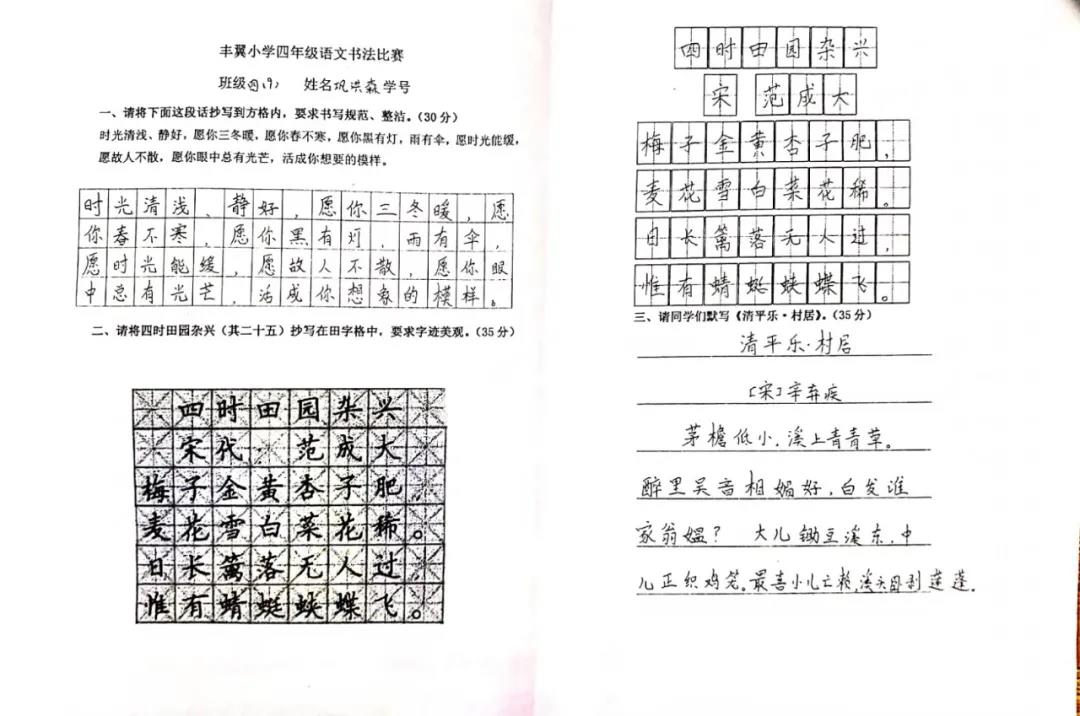 丰翼小学四年级语文书法比赛
班级四(9) 姓名巩洪森学号
一、请将下面这段话抄写到方格内，要求书写规范、整洁。(30分)
时光清浅、静好，愿你三冬暖，愿你春不寒，愿你黑有灯，雨有伞，愿时光能缓，
愿故人不散，愿你眼中总有光芒，活成你想要的模样。
时光清浅、静好，愿你三冬暖，愿
你春不寒，愿你黑有灯，雨有伞，
愿时光能缓，愿故人不散，愿你眼
中总有光芒，活成你想象的模样。
二、请将四时田园杂兴（其二十五）抄写在田字格中，要求字迹美观。(35分)
四时田园杂兴
宋代 范成大
梅子金黄杏子肥，
麦花雪白菜花稀。
日长篱落无人过，
惟有蜻蜓蛱蝶飞。
四时田园杂兴
宋 范成大
梅子金黄杏子肥，
麦花雪白菜花稀。
日长篱落无人过，
惟有蜻蜓蛱蝶飞。
三、请同学们默写《清平乐·村居》。(35分)
清平乐·村居
[宋]辛弃疾
茅檐低小，溪上青青草。
醉里吴音相媚好，白发谁
家翁媪？ 大儿锄豆溪东，中
儿正织鸡笼。最喜小儿亡赖，溪头卧剥莲蓬。